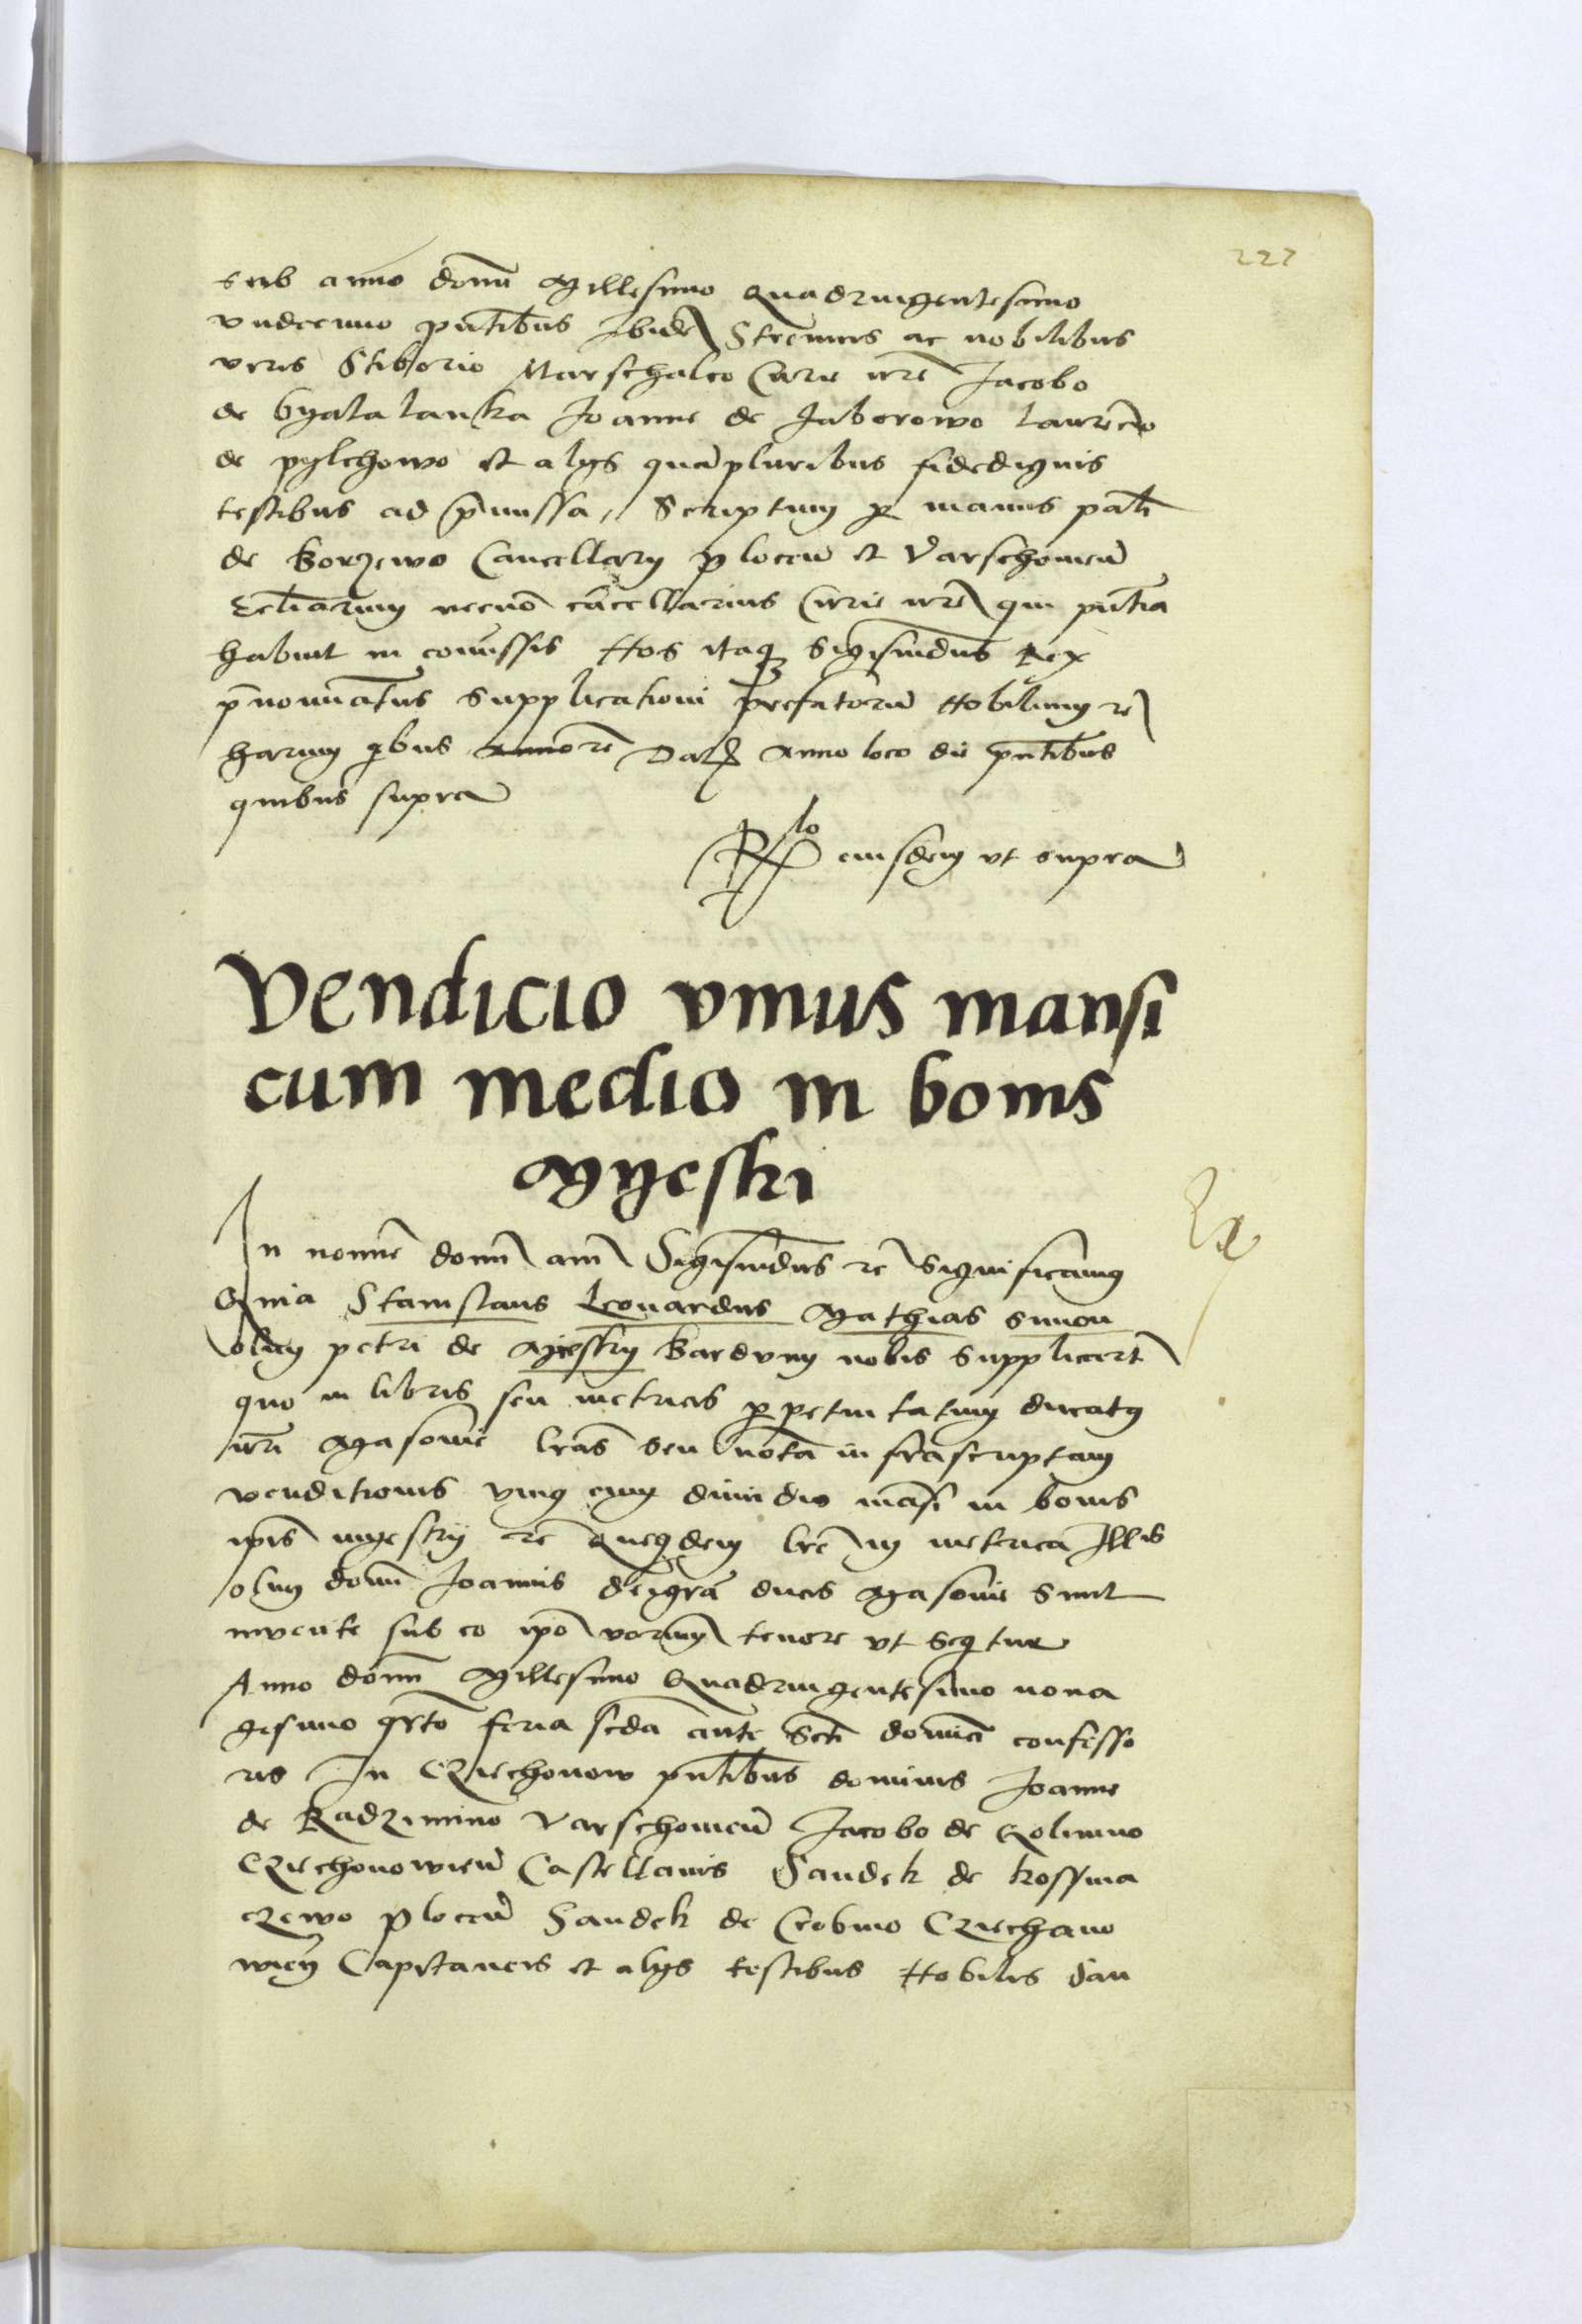 227
sub anno domī Millesimo Quadringentesimo
vndecimo pntibus Ibidē Strenuis ac nobilibus
viris Stiborio Marschalco Curie nrē Jacobo
de byala lanka Joanne de Jaborowo laurēcio
de pylchowo et alys quāpluribus fidedignis
testibus ad p̄missa, Scriptum p manus pali
de Borzewo Cancellary plocen̄ et Varschouien̄
Ecl̄iarum necnō cācellarius Curie nrē qui pn̄tia
habuit in cōmissis Nos itaq Sigismūdus Rex
p̄nomiatus supplicationi prefatorū Nobilium rē
harum qbus rē Dat Anno loco die pn̄tibus
quibus supra
Rlo eiusdem vt supra
Vendicio vnius mansi
cum medio in bonis
Myestri
In nomīe domī amē Sigismūdus rē Significamus
Quia Stanislaus Leonardus Mathias Simon
olim petri de Kardvny nobis supplicert
quo in libris seu metricis perpetuitatum ducatus
nrī Masouie lrās seu notā infrascriptam
venditionis vnius cum dimidio māsi in bonis
ip̄is rē Quequdem lrē in metrica Illis
olim domī Joannis deigrā ducis Masouie sunt
invente sub eo ipō verum tenore vt seqtur
Anno domī Millesimo Quadringentesimo nona
gesimo qrto feria scda ante Scti domici confesso
ris In Czechonow pn̄tibus dominis Joanne
de Radzimino Varschouien̄ Jacobo de Golimino
Czechonowien̄ Castellanis Sandek de kossma
czewo plocen̄ Sandek de Czechano
wien̄ Capitaneis et alys testibus Nobilis Jan